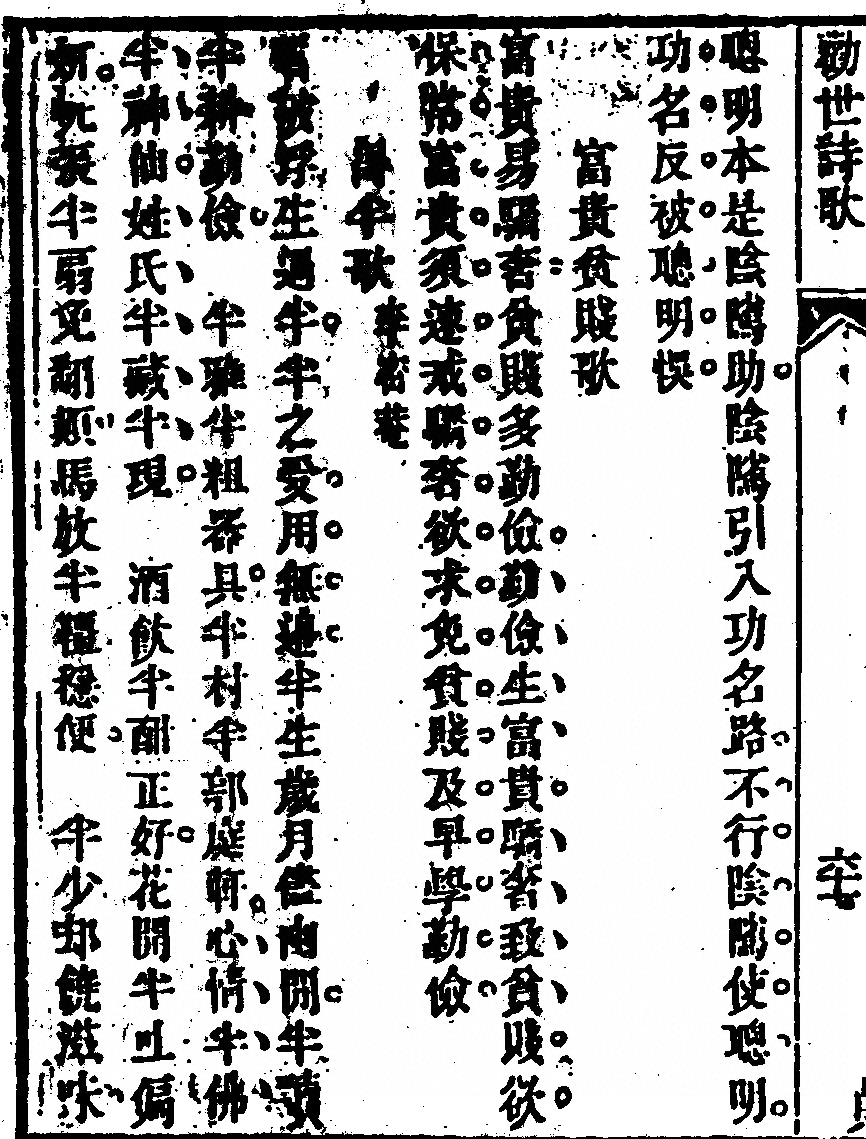 勸世詩歌
六七
聰明本是陰隲助陰隲引入功名路不行陰隲使聰明
功名反被聰明悞
富貴貧賤歌
富貴易驕奢貧賤多勤儉勤儉生富貴驕奢致貧賤欲
保常富貴須速戒驕奢欲求免貧賤及早學勤儉
半歌 李密菴
破浮生過半半之受用無邊半生歲月儘幽閒半
半耕勤儉 半雅半粗器具半村半郭庭軒心情半佛
半神仙姓氏半藏半現 酒飲半酣正好花開半吐偏
妍帆張半扇免翻顛馬放半韁穩便 半少却饒滋味